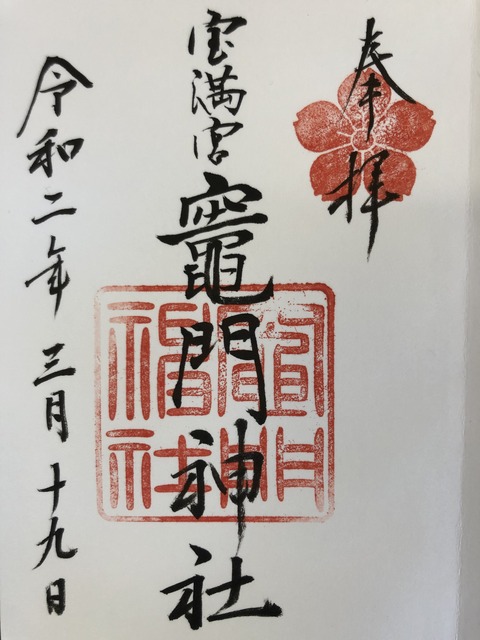 奉拝
宝満宮
竈門神社
令和二年三月十九日